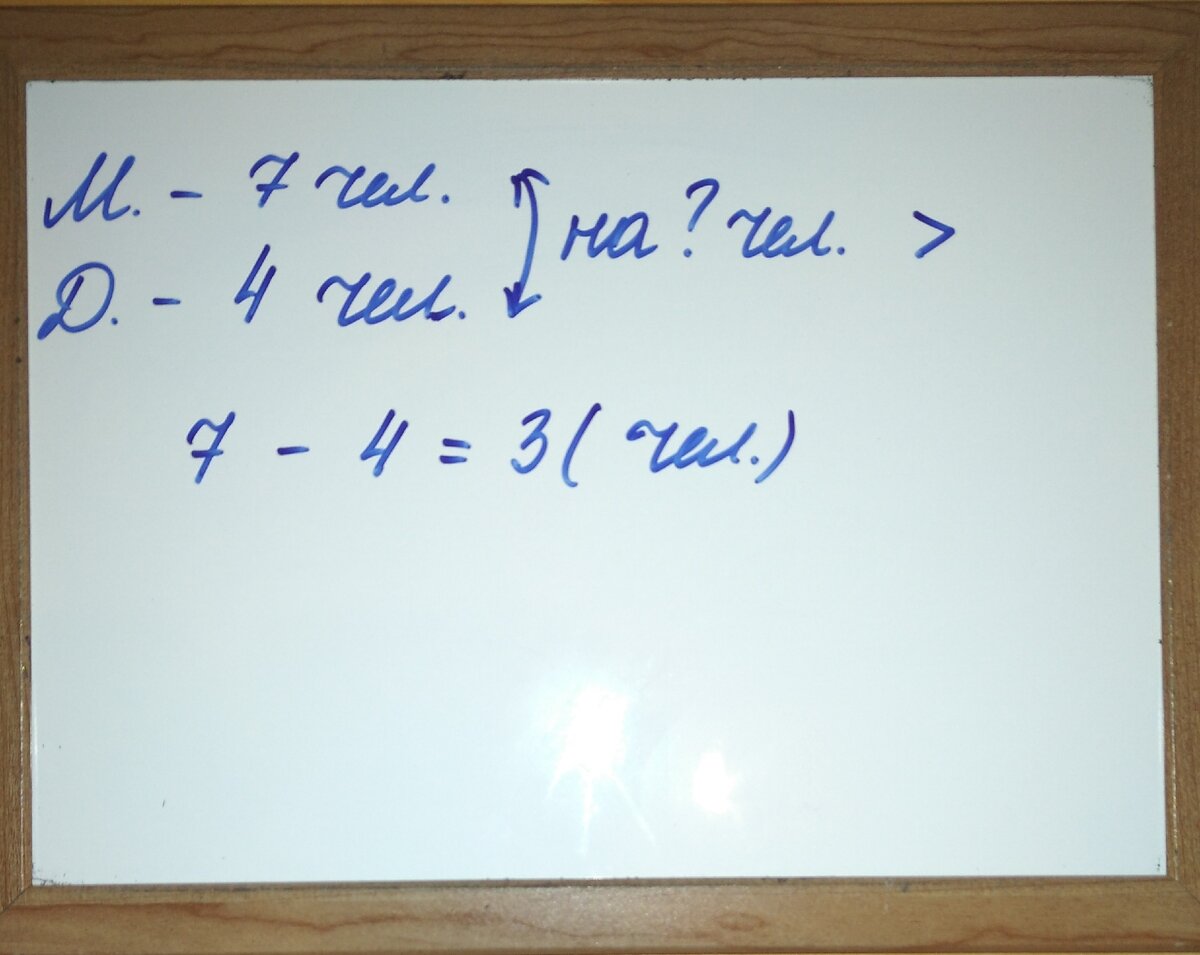 М. - 7 чел.
на ? чел. >
Д. - 4 чел.
7 - 4 = 3 ( чел.)